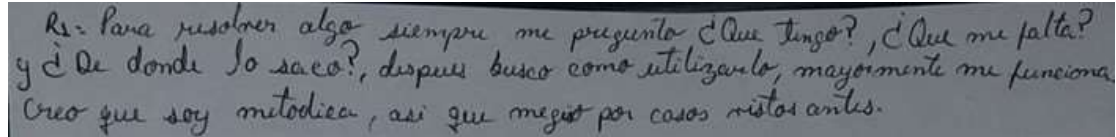 R1= Para resolver algo siempre me pregunto ¿Que tengo?, ¿Que me falta?
y ¿De donde lo saco?, despues busco como utilizarlo, mayormente me funciona.
Creo que soy metodica, asi que por casos vistos antes.